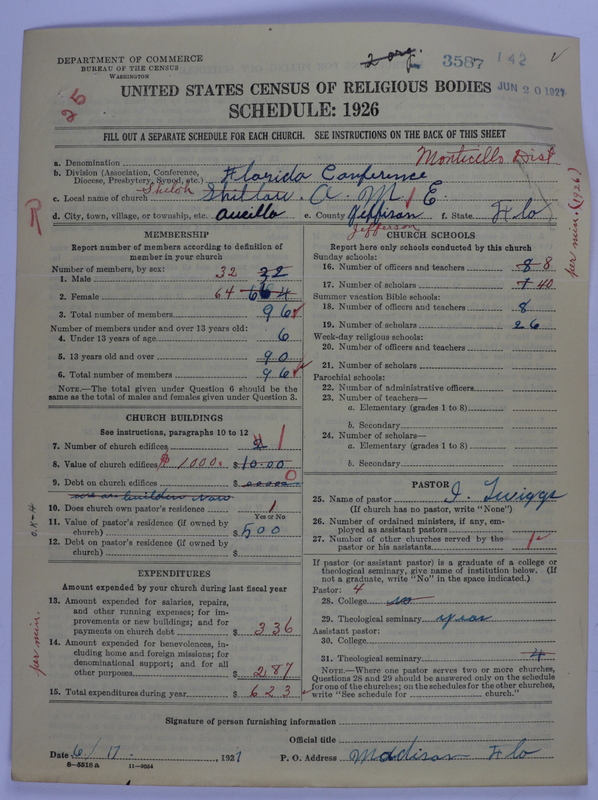 2 org. 3587 142
DEPARTMENT OF COMMERCE
BUREAU OF THE CENSUS
WASHINGTON
JUN 20 1927
UNITED STATES CENSUS OF RELIGIOUS BODIES
SCHEDULE: 1926
25
FILL OUT A SEPARATE SCHEDULE FOR EACH CHURCH. SEE INSTRUCTIONS ON THE BACK OF THIS SHEET
a. Denomination Monticello Dist
b. Division (Association, Conference, Diocese, Presbytery, Synod, etc.) Florida Conference
Shiloh
c. Local name of church A. M. E.
d. City, town, village, or township, etc. Aucilla e. County Jeffirson f. State Flo
Jefferson
per min. (1926)
MEMBERSHIP
Report number of members according to definition of
member in your church
Number of members, by sex:
1. Male 32 32
2. Female 64 64
3. Total number of members 96
Number of members under and over 13 years old:
4. Under 13 years of age 6
5. 13 years old and over 90
6. Total number of members 96
NOTE.—The total given under Question 6 should be the
same as the total of males and females given under Question 3.
CHURCH BUILDINGS
See instructions, paragraphs 10 to 12
7. Number of church edifices 2 1
8. Value of church edifices $ 1000. $ 10.00
9. Debt on church edifices $ 0
10. Does church own pastor's residence 1
Yes or No
11. Value of pastor's residence (if owned by
church) $ 500
12. Debt on pastor's residence (if owned by
church) $
O.K-4
EXPENDITURES
Amount expended by your church during last fiscal year
13. Amount expended for salaries, repairs,
and other running expenses; for im-
provements or new buildings; and for
payments on church debt $ 336
14. Amount expended for benevolences, in-
cluding home and foreign missions; for
denominational support; and for all
other purposes $ 287
15. Total expenditures during year $ 623
per min.
CHURCH SCHOOLS
Report here only schools conducted by this church
Sunday schools:
16. Number of officers and teachers 8 8
17. Number of scholars 40
Summer vacation Bible schools:
18. Number of officers and teachers 8
19. Number of scholars 26
Week-day religious schools:
20. Number of officers and teachers
21. Number of scholars
Parochial schools:
22. Number of administrative officers
23. Number of teachers—
a. Elementary (grades 1 to 8)
b. Secondary
24. Number of scholars—
a. Elementary (grades 1 to 8)
b. Secondary
PASTOR
25. Name of pastor J. Twiggs
(If church has no pastor, write "None")
26. Number of ordained ministers, if any, em-
ployed as assistant pastors
27. Number of other churches served by the
pastor or his assistants 1
If pastor (or assistant pastor) is a graduate of a college or
theological seminary, give name of institution below. (If
not a graduate, write "No" in the space indicated.)
Pastor: 4
28. College no
29. Theological seminary year
Assistant pastor:
30. College
31. Theological seminary 4
NOTE.—Where one pastor serves two or more churches,
Questions 28 and 29 should be answered only on the schedule
for one of the churches; on the schedules for the other churches,
write "See schedule for church."
Signature of person furnishing information
Official title
Date 6/17 , 1927 P. O. Address Maddison Flo
8—5516 a 11—9054